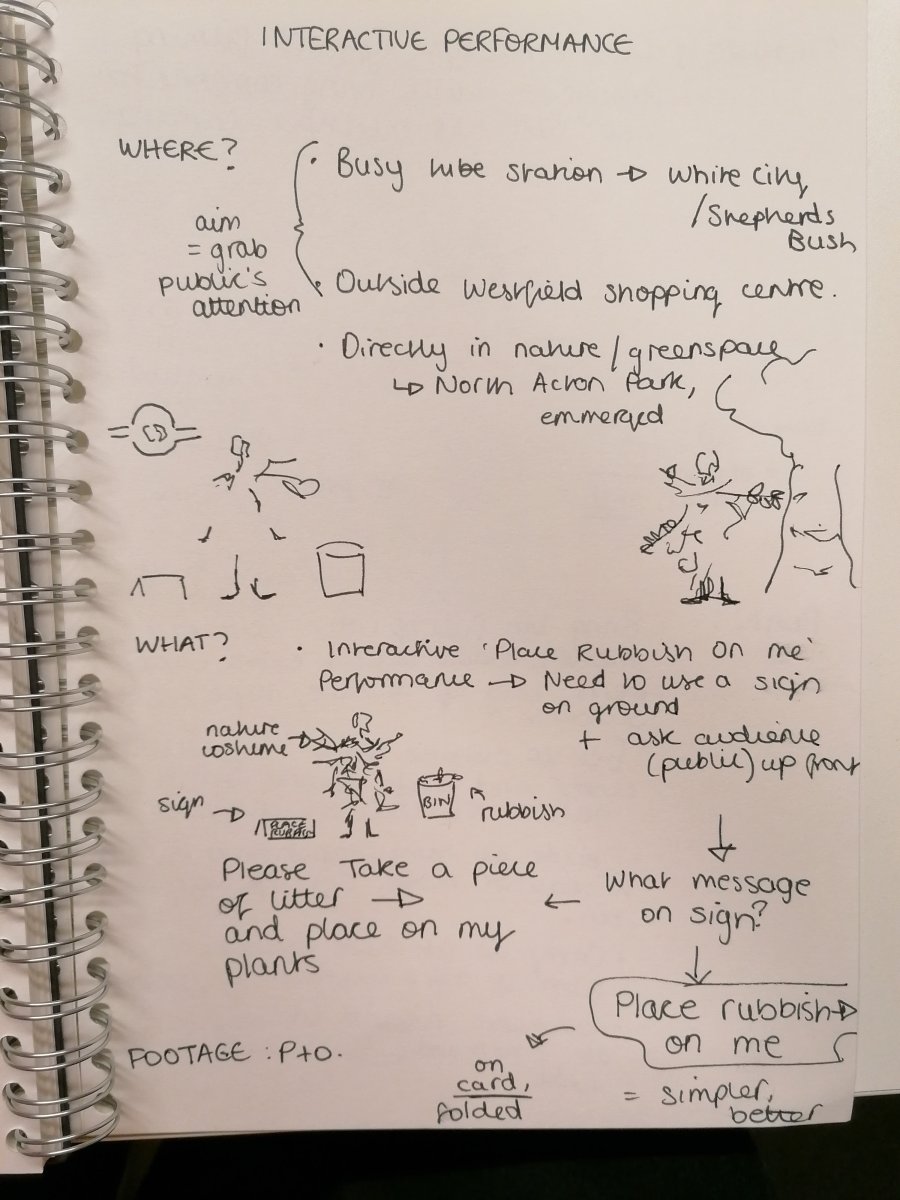 INTERACTIVE PERFORMANCE
WHERE?
· Busy tube station → White City
/Shepherds
Bush
aim
= grab
public's
attention
· Outside Westfield shopping centre.
· Directly in nature / greenspace
↳ North Acton Park,
emmerged
WHAT?
· Interactive 'Place Rubbish On me'
Performance → Need to use a sign
on ground
+ ask audience
(public) up front
nature
costume →
sign →
PLACE
BIN
rubbish
What message
on sign?
Please Take a piece
of litter →
and place on my
plants
Place rubbish →
on me
= simpler,
better
on
card,
folded
FOOTAGE : P+O.